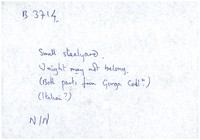 B 3714.
Small steelyard.
Weight may not belong.
(Both parts from Gorga Coll<sup>n</sup>)
(Italian?)
N/N